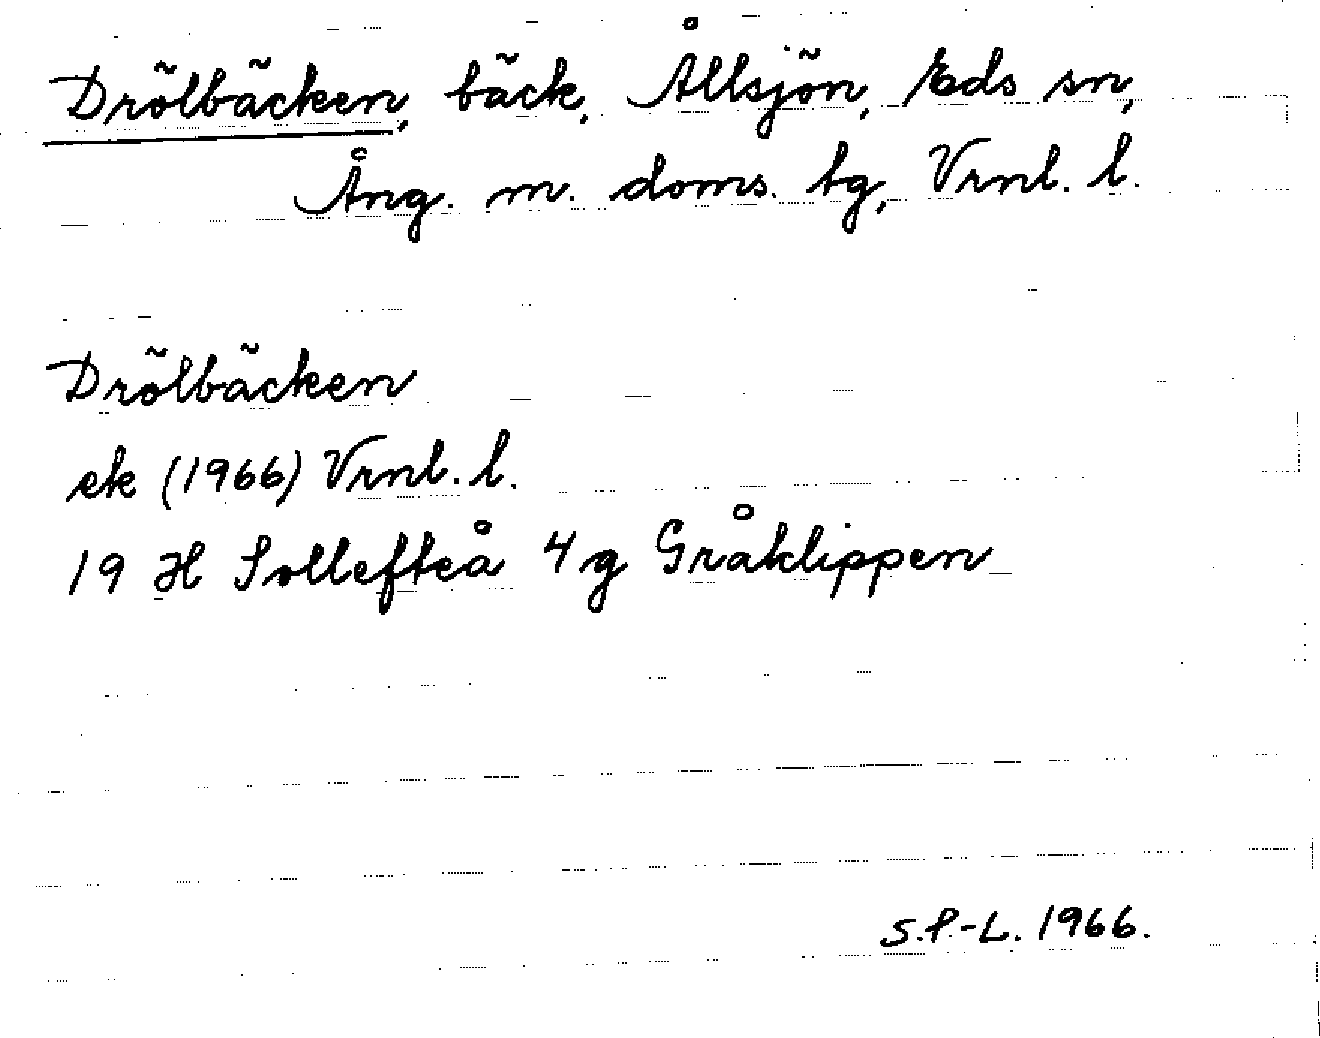 Drölbäcken, bäck, Ållsjön, Eds sn,
Ång. m. doms. tg, Vrnl. l.
Drölbäcken
ek (1966) Vrnl. l.
19 H Sollefteå 4 g Gråklippen
S.P.-L. 1966.